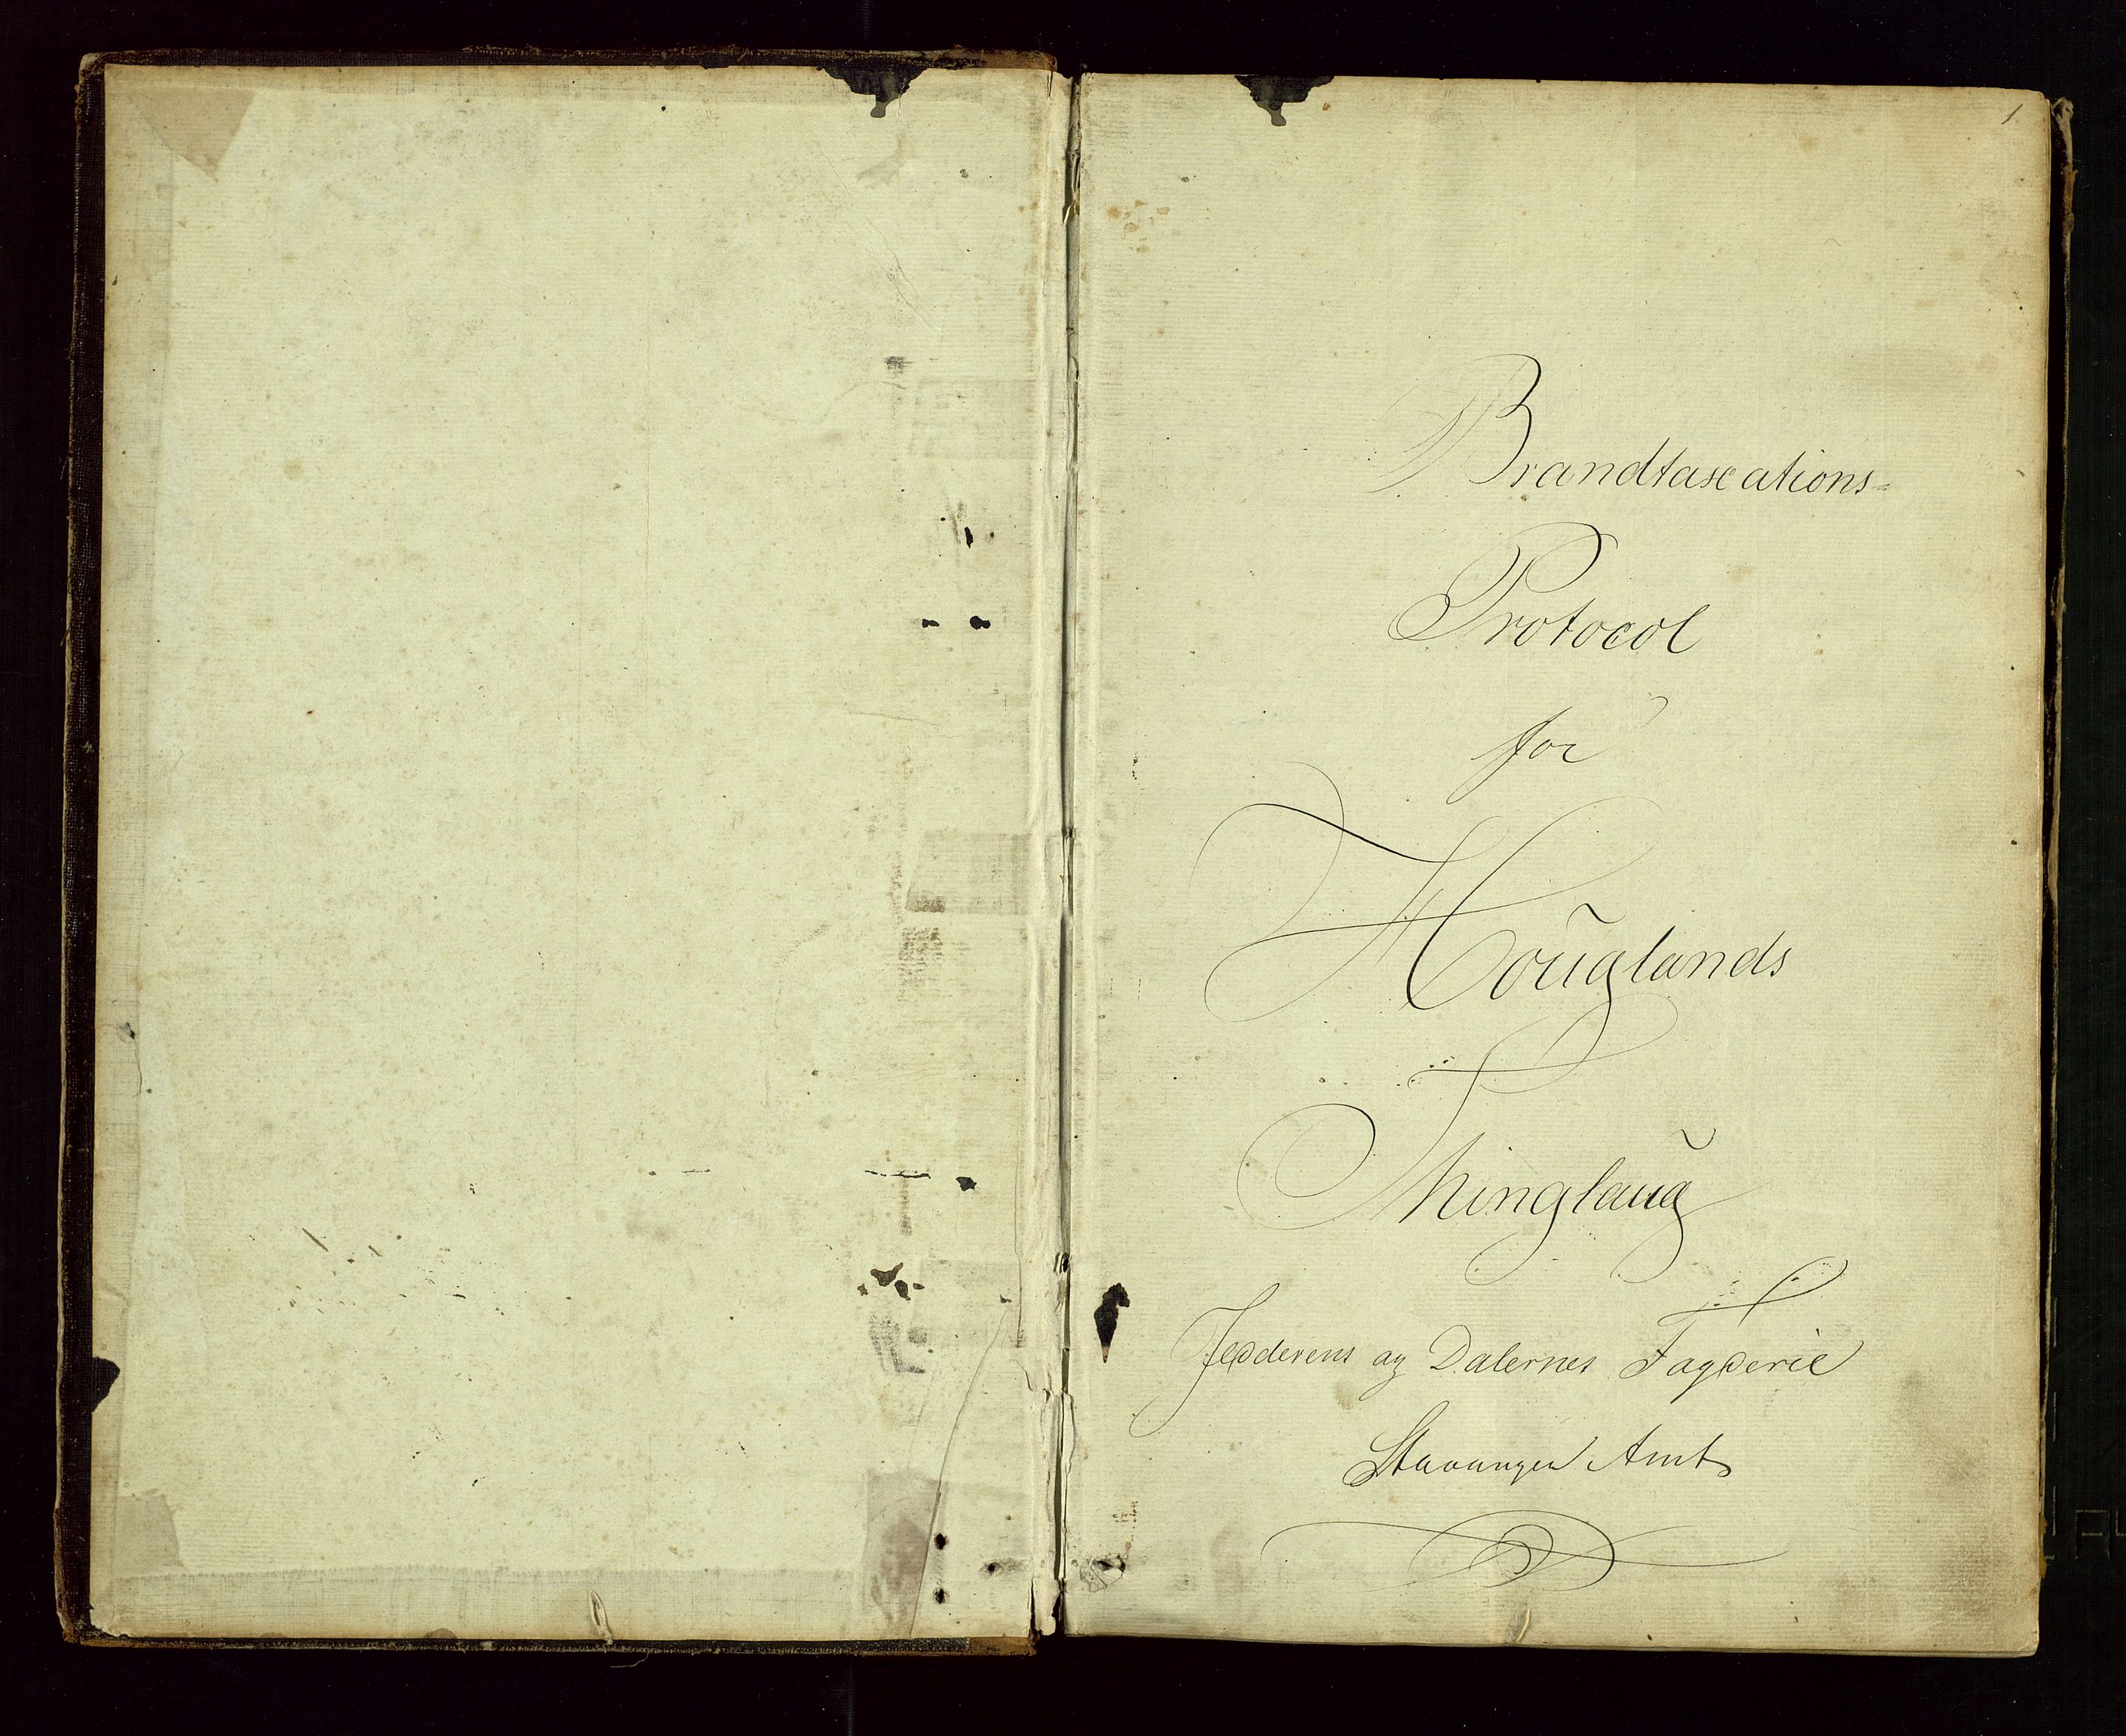 1
Brandtaxations-
Protocol
for
Houglands
Thinglaug
Jæderens og Dalernes Fogderie
Stavanger Amt